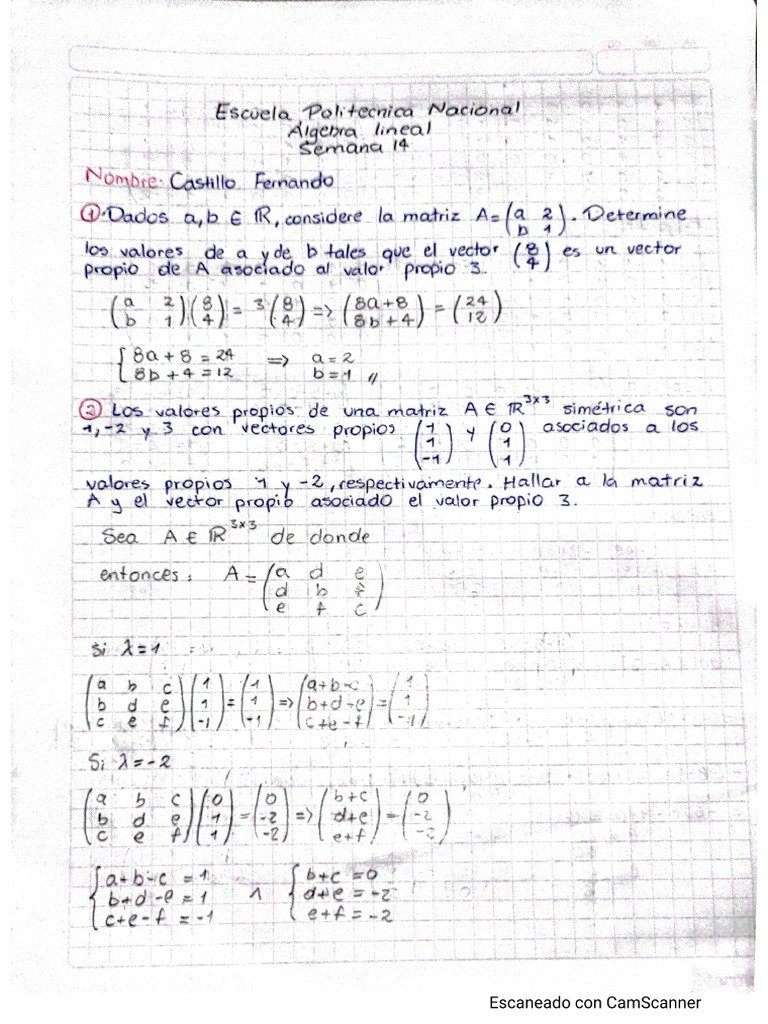 Escuela Politecnica Nacional
Algebra lineal
Semana 14
Nombre: Castillo Fernando
① Dados a, b ∈ ℝ, considere la matriz A = (a 2
b 1). Determine
los valores de a y de b tales que el vector (8
4) es un vector
propio de A asociado al valor propio 3.
(a 2
b 1)(8
4) = 3(8
4) => (8a+8
8b+4) = (24
12)
{8a+8=24 => a=2
8b+4=12 b=1 //
② Los valores propios de una matriz A ∈ ℝ^3x3 simétrica son
1, -2 y 3 con vectores propios (1
1
-1) y (0
1
1) asociados a los
valores propios 1 y -2, respectivamente. Hallar a la matriz
A y el vector propio asociado el valor propio 3.
Sea A ∈ ℝ^3x3 de donde
entonces: A = (a d e
d b f
e f c)
Si λ=1
(a b c
b d e
c e f)(1
1
-1) = (1
1
-1) => (a+b-c
b+d-e
c+e-f) = (1
1
-1)
Si λ=-2
(a b c
b d e
c e f)(0
1
1) = (0
-2
-2) => (b+c
d+e
e+f) = (0
-2
-2)
{a+b-c = 1
b+d-e = 1
c+e-f = -1 ∧ {b+c = 0
d+e = -2
e+f = -2
Escaneado con CamScanner